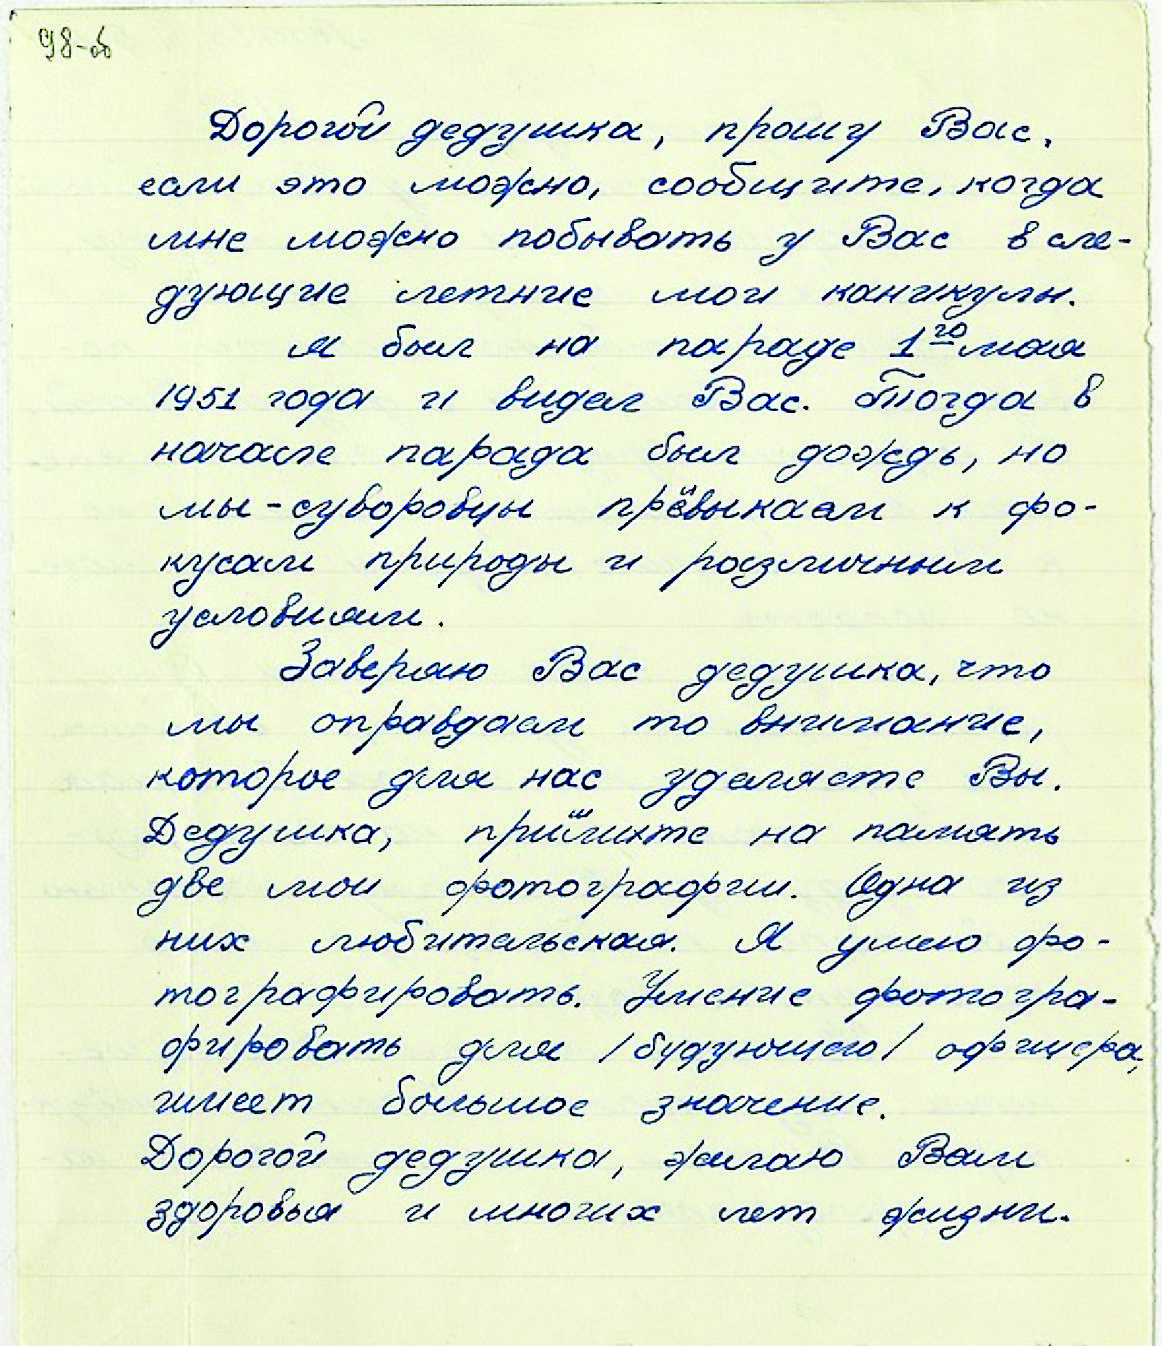 98-об
Дорогой дедушка, прошу Вас,
если это можно, сообщите, когда
мне можно побывать у Вас в сле-
дующие летние мои каникулы.
Я был на параде 1го мая
1951 года и видел Вас. Тогда в
начале парада был дождь, но
мы-суворовцы привыкаем к фо-
кусам природы и различным
условиям.
Заверяю Вас дедушка, что
мы оправдаем то внимание,
которое для нас уделяете Вы.
Дедушка, примите на память
две мои фотографии. Одна из
них любительская. Я умею фо-
тографировать. Умение фотогра-
фировать для /будующего/ офицера,
имеет большое значение.
Дорогой дедушка, желаю Вам
здоровья и многих лет жизни.